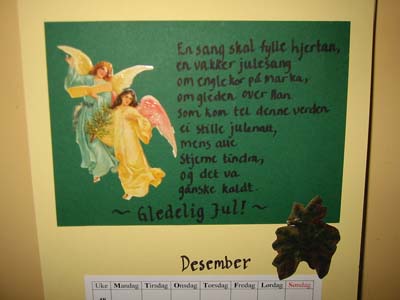 En sang skal fylle hjertan,
en vakker julesang
om englekor på marka,
om gleden over Han
som kom tel denne verden
ei stille julenatt,
mens alle
Stjerne tindra,
og det va
ganske kaldt.
~ Gledelig Jul! ~
Desember
Uke Mandag Tirsdag Onsdag Torsdag Fredag Lørdag Søndag